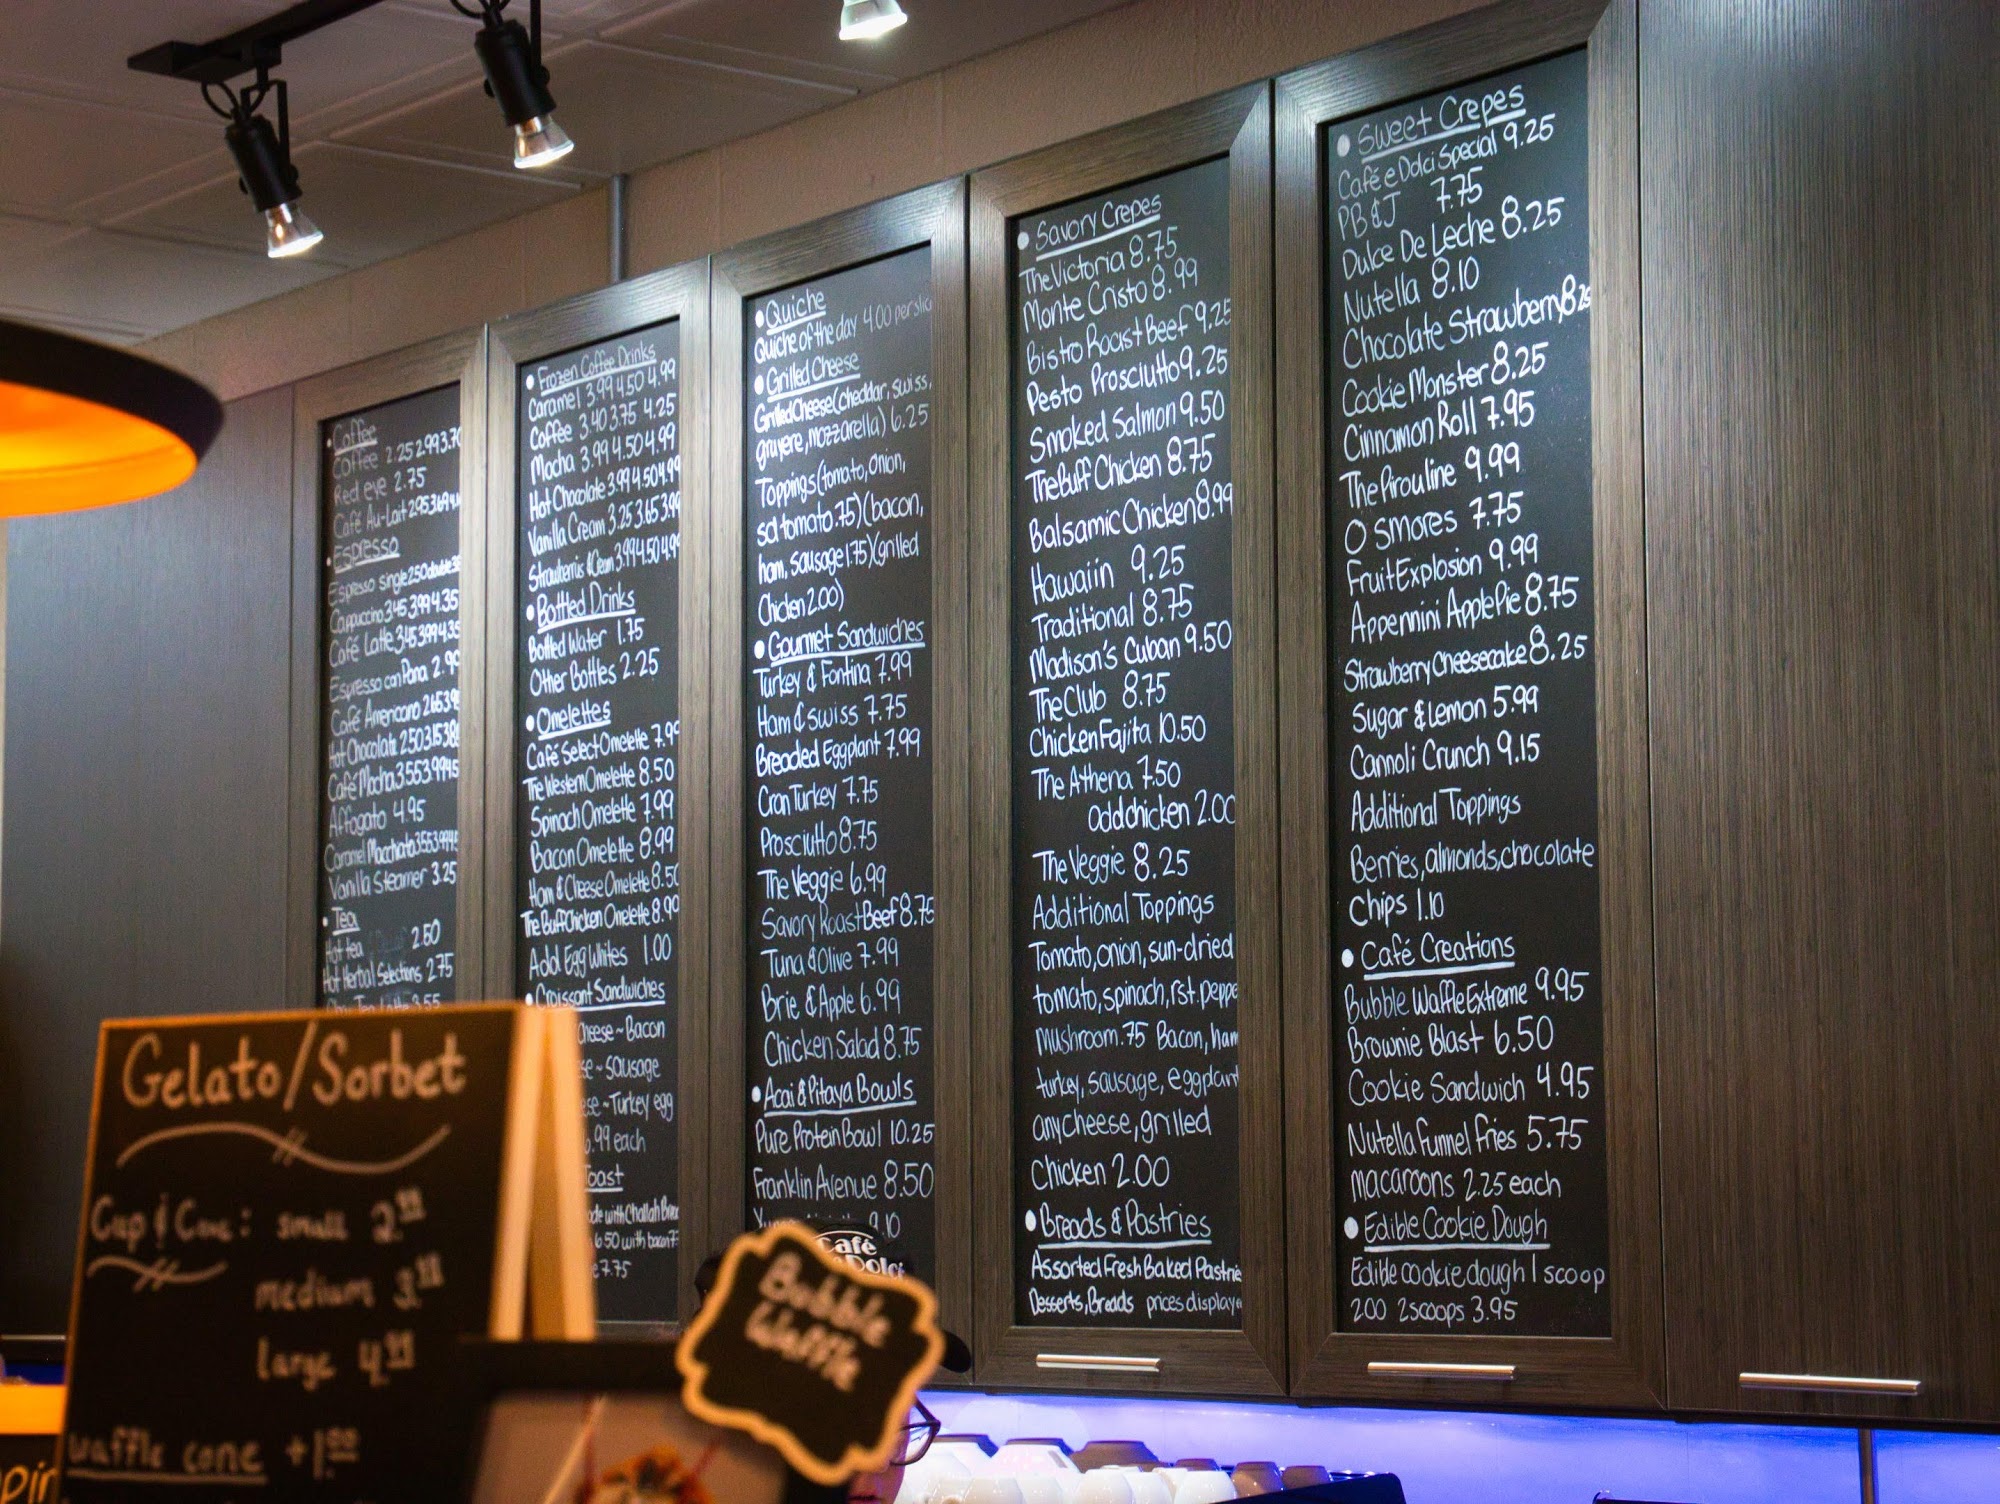 Coffee
Coffee 2.25 2.99 3.70
Red eye 2.75
Café Au-Lait 2.95 3.69 4.
Espresso
Espresso single 2.50 double 3.
Cappuccino 3.45 3.99 4.35
Café Latte 3.45 3.99 4.35
Espresso con Pana 2.99
Café Americano 2.65 3.
Hot Chocolate 2.50 3.15 3.
Café Mocha 3.55 3.99 4.
Affogato 4.95
Caramel Macchato 3.55 3.99 4.
Vanilla Steamer 3.25
Tea
Hot tea 2.50
Hot Herbal Selections 2.75
Frozen Coffee Drinks
Caramel 3.99 4.50 4.99
Coffee 3.40 3.75 4.25
Mocha 3.99 4.50 4.99
Hot Chocolate 3.99 4.50 4.99
Vanilla Cream 3.25 3.65 3.99
Strawberries & Cream 3.99 4.50 4.99
Bottled Drinks
Bottled Water 1.75
Other Bottles 2.25
Omelettes
Café Select Omelette 7.99
The Western Omelette 8.50
Spinach Omelette 7.99
Bacon Omelette 8.99
Ham & Cheese Omelette 8.50
The Buff Chicken Omelette 8.99
Add Egg Whites 1.00
Croissant Sandwiches
cheese ~ Bacon
~ Sausage
~ Turkey egg
.99 each
Toast
with Challah Bread
6.50 with bacon 7.
7.75
Quiche
Quiche of the day 4.00 per slice
Grilled Cheese
Grilled Cheese (cheddar, swiss,
gruyere, mozzarella) 6.25
Toppings (tomato, onion,
sd tomato .75) (bacon,
ham, sausage 1.75) (grilled
Chicken 2.00)
Gourmet Sandwiches
Turkey & Fontina 7.99
Ham & Swiss 7.75
Breaded Eggplant 7.99
Cran Turkey 7.75
Prosciutto 8.75
The Veggie 6.99
Savory Roast Beef 8.75
Tuna & Olive 7.99
Brie & Apple 6.99
Chicken Salad 8.75
Acai & Pitaya Bowls
Pure Protein Bowl 10.25
Franklin Avenue 8.50
9.10
Savory Crepes
The Victoria 8.75
Monte Cristo 8.99
Bistro Roast Beef 9.25
Pesto Prosciutto 9.25
Smoked Salmon 9.50
The Buff Chicken 8.75
Balsamic Chicken 8.99
Hawaiin 9.25
Traditional 8.75
Madison's Cuban 9.50
The Club 8.75
Chicken Fajita 10.50
The Athena 7.50
add chicken 2.00
The Veggie 8.25
Additional Toppings
Tomato, onion, sun-dried
tomato, spinach, rst. peppe
mushroom .75 Bacon, ham
turkey, sausage, eggplant
any cheese, grilled
Chicken 2.00
Breads & Pastries
Assorted Fresh Baked Pastrie
Desserts, Breads prices displaye
Sweet Crepes
Café e Dolci Special 9.25
PB & J 7.75
Dulce De Leche 8.25
Nutella 8.10
Chocolate Strawberry 8.25
Cookie Monster 8.25
Cinnamon Roll 7.95
The Pirouline 9.99
O Smores 7.75
Fruit Explosion 9.99
Appennini Apple Pie 8.75
Strawberry Cheesecake 8.25
Sugar & Lemon 5.99
Cannoli Crunch 9.15
Additional Toppings
Berries, almonds, chocolate
Chips 1.10
Café Creations
Bubble Waffle Extreme 9.95
Brownie Blast 6.50
Cookie Sandwich 4.95
Nutella Funnel Fries 5.75
macaroons 2.25 each
Edible Cookie Dough
Edible cookie dough 1 scoop
2.00 2 scoops 3.95
Gelato/Sorbet
Cup & Cone: small 2.99
medium 3.
large 4.99
waffle cone +1.00
Café
Dolci
Bubble
Waffle